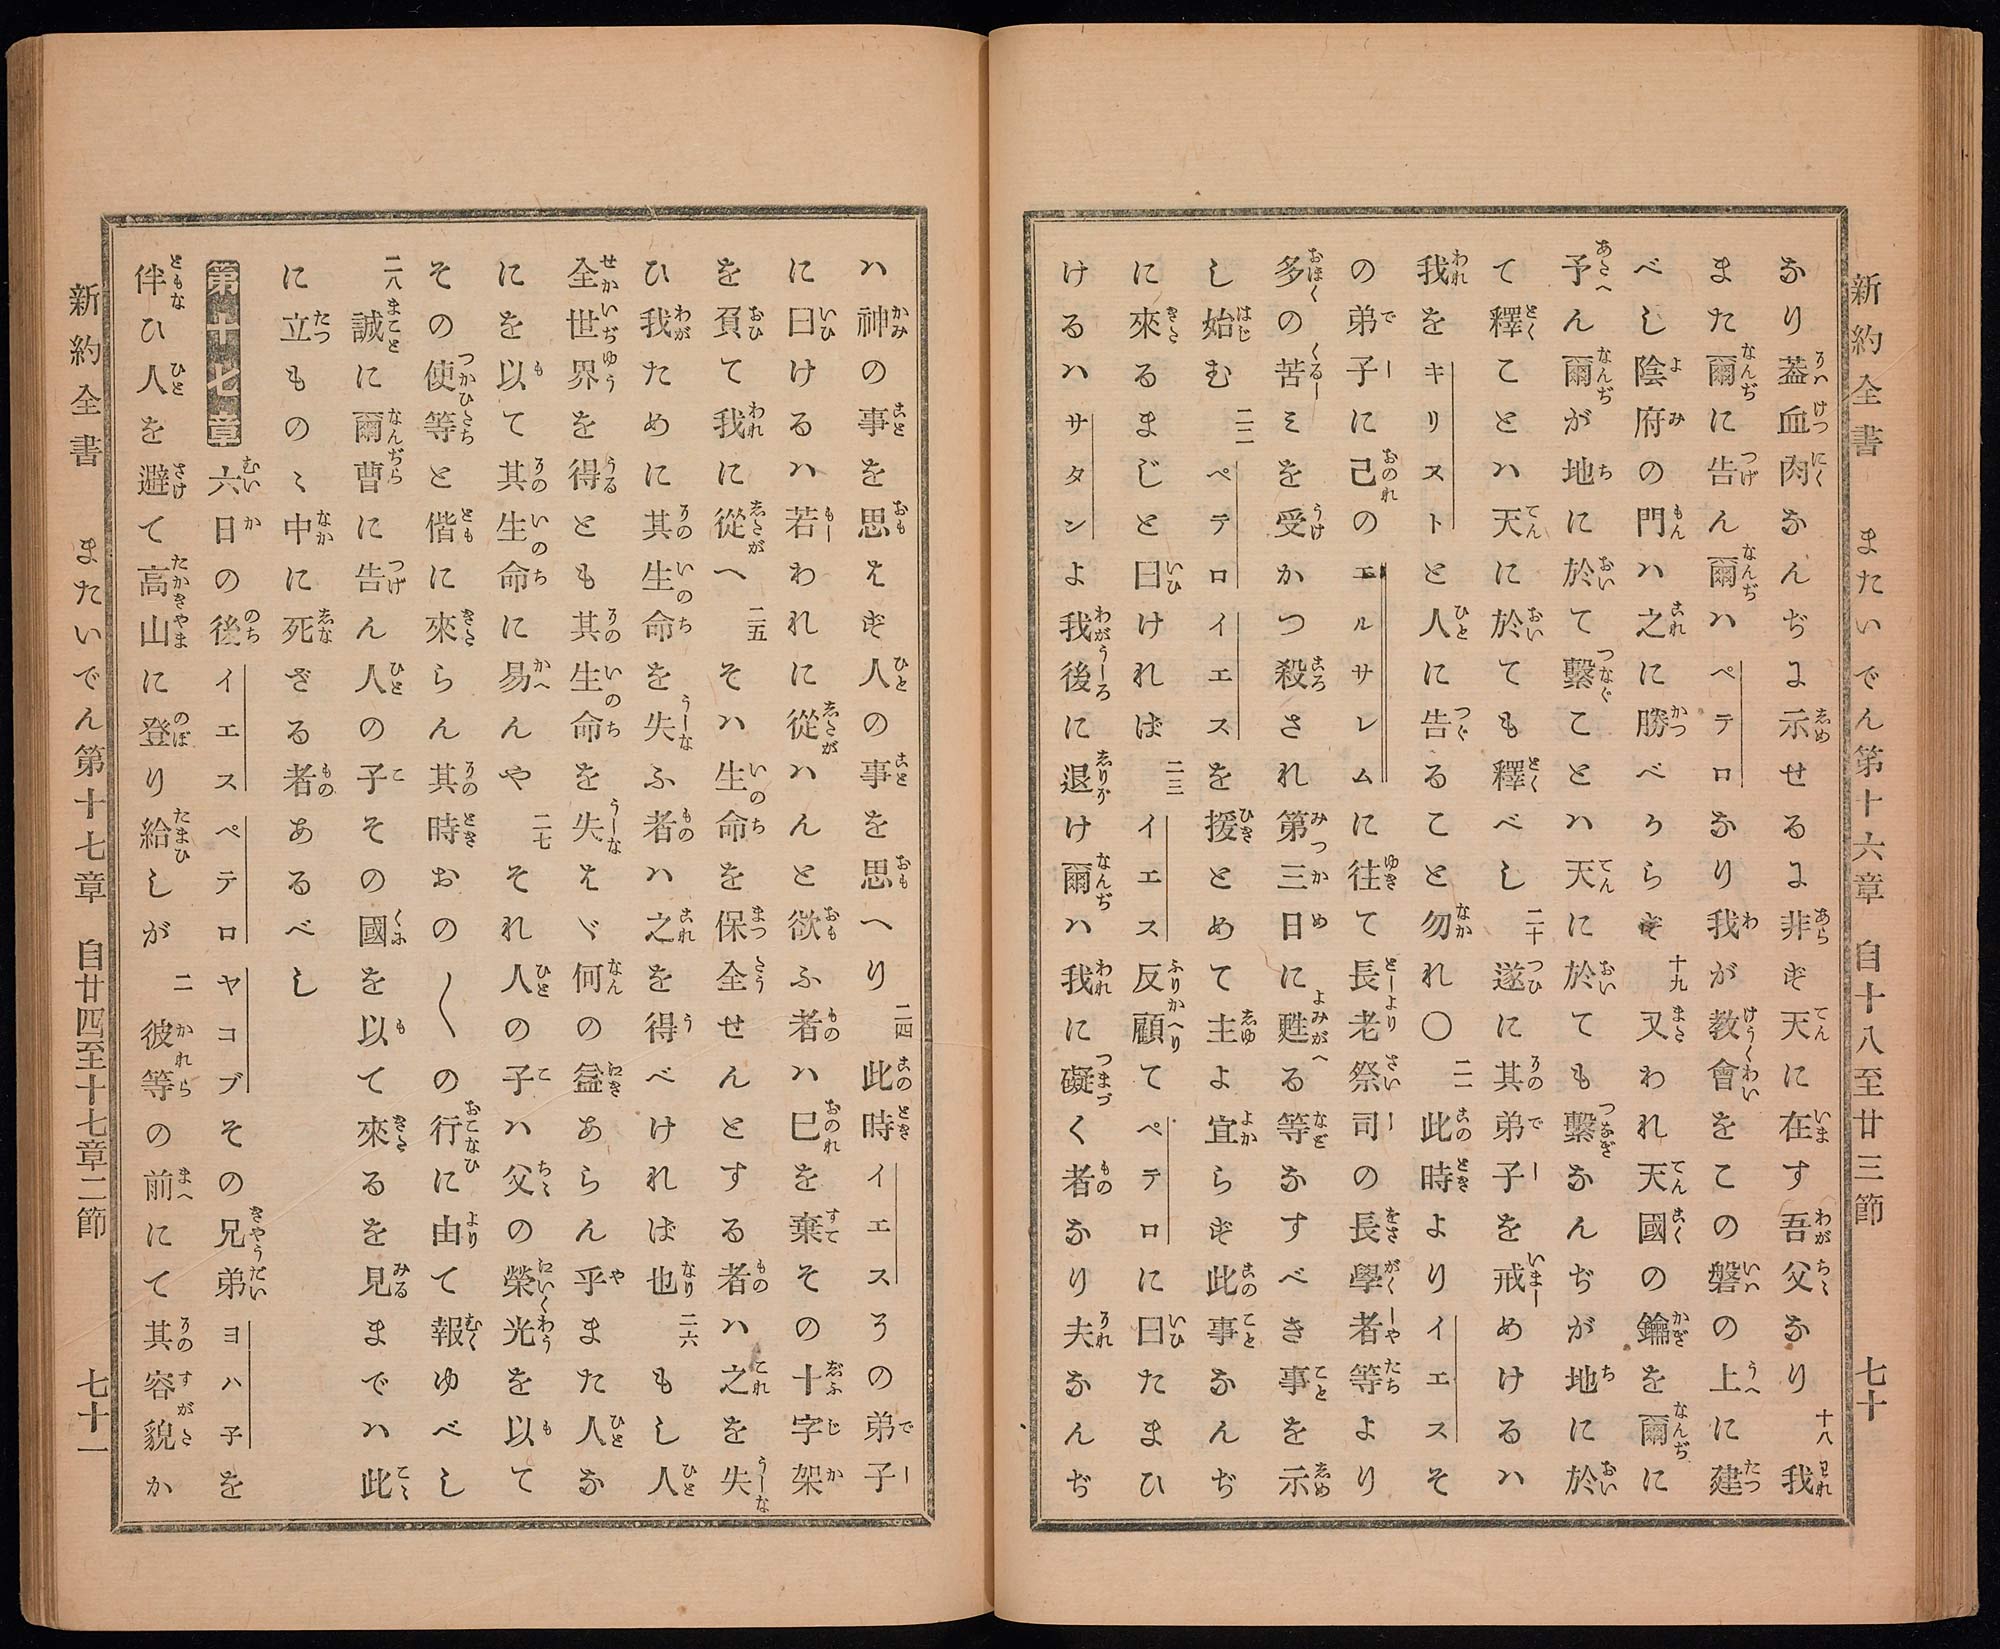 新約全書 またいでん第十六章 自十八至廿三節 七十
なり蓋血肉なんぢに示せるに非ず天に在す吾父なり 十八 我
また爾に告ん爾ハペテロなり我が教會をこの磐の上に建
べし陰府の門ハ之に勝べからず 十九 又われ天國の鑰を爾に
予ん爾が地に於て繫ことハ天に於ても繫なんぢが地に於
て釋ことハ天に於ても釋べし 二十 遂に其弟子を戒めけるハ
我をキリストと人に告ること勿れ〇 二一 此時よりイエスそ
の弟子に己のエルサレムに往て長老祭司の長學者等より
多の苦ミを受かつ殺され第三日に甦る等なすべき事を示
し始む 二二 ペテロイエスを援とめて主よ宜らず此事なんぢ
に來るまじと曰ければ 二三 イエス反顧てペテロに曰たまひ
けるハサタンよ我後に退け爾ハ我に礙く者なり夫なんぢ
ハ神の事を思はず人の事を思へり 二四 此時イエスその弟子
に曰けるハ若われに從ハんと欲ふ者ハ己を棄その十字架
を負て我に從へ 二五 そハ生命を保全せんとする者ハ之を失
ひ我ために其生命を失ふ者ハ之を得べければ也 二六 もし人
全世界を得とも其生命を失はゞ何の益あらん乎また人な
にを以て其生命に易んや 二七 それ人の子ハ父の榮光を以て
その使等と偕に來らん其時おの〱の行に由て報ゆべし
二八 誠に爾曹に告ん人の子その國を以て來るを見までハ此
に立ものゝ中に死ざる者あるべし
第十七章 六日の後イエスペテロヤコブその兄弟ヨハ子を
伴ひ人を避て高山に登り給しが 二 彼等の前にて其容貌か
新約全書 またいでん第十七章 自廿四至十七章二節 七十一